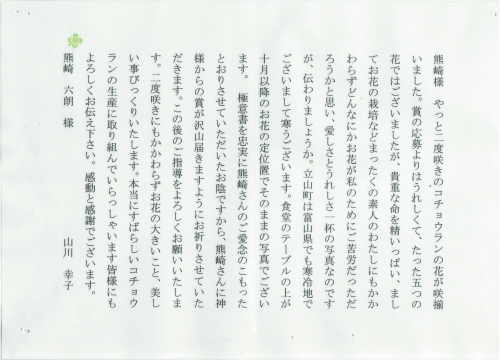 熊崎様　やっと二度咲きのコチョウランの花が咲揃
いました。賞の応募よりはうれしくて、たった五つの
花ではございましたが、貴重な命を精いっぱい、まし
てお花の栽培などまったくの素人のわたしにもかか
わらずどんなにかお花が私のためにご苦労だっただ
ろうかと思い、愛しさとうれしさ一杯の写真なのです
が、伝わりましょうか。立山町は富山県でも寒冷地で
ございまして寒うございます。食堂のテーブルの上が
十月以降のお花の定位置でそのままの写真でござい
ます。　極意書を忠実に熊崎さんのご愛念のこもった
とおりさせていただいたお陰ですから、熊崎さんに神
様からの賞が沢山届きますようにお祈りさせていた
だきます。この後のご指導をよろしくお願いいたしま
す。二度咲きにもかかわらずお花の大きいこと、美し
い事びっくりいたします。本当にすばらしいコチョウ
ランの生産に取り組んでいらっしゃいます皆様にも
よろしくお伝え下さい。感動と感謝でございます。
熊崎　六朗　様　　　　　　　　山川　幸子